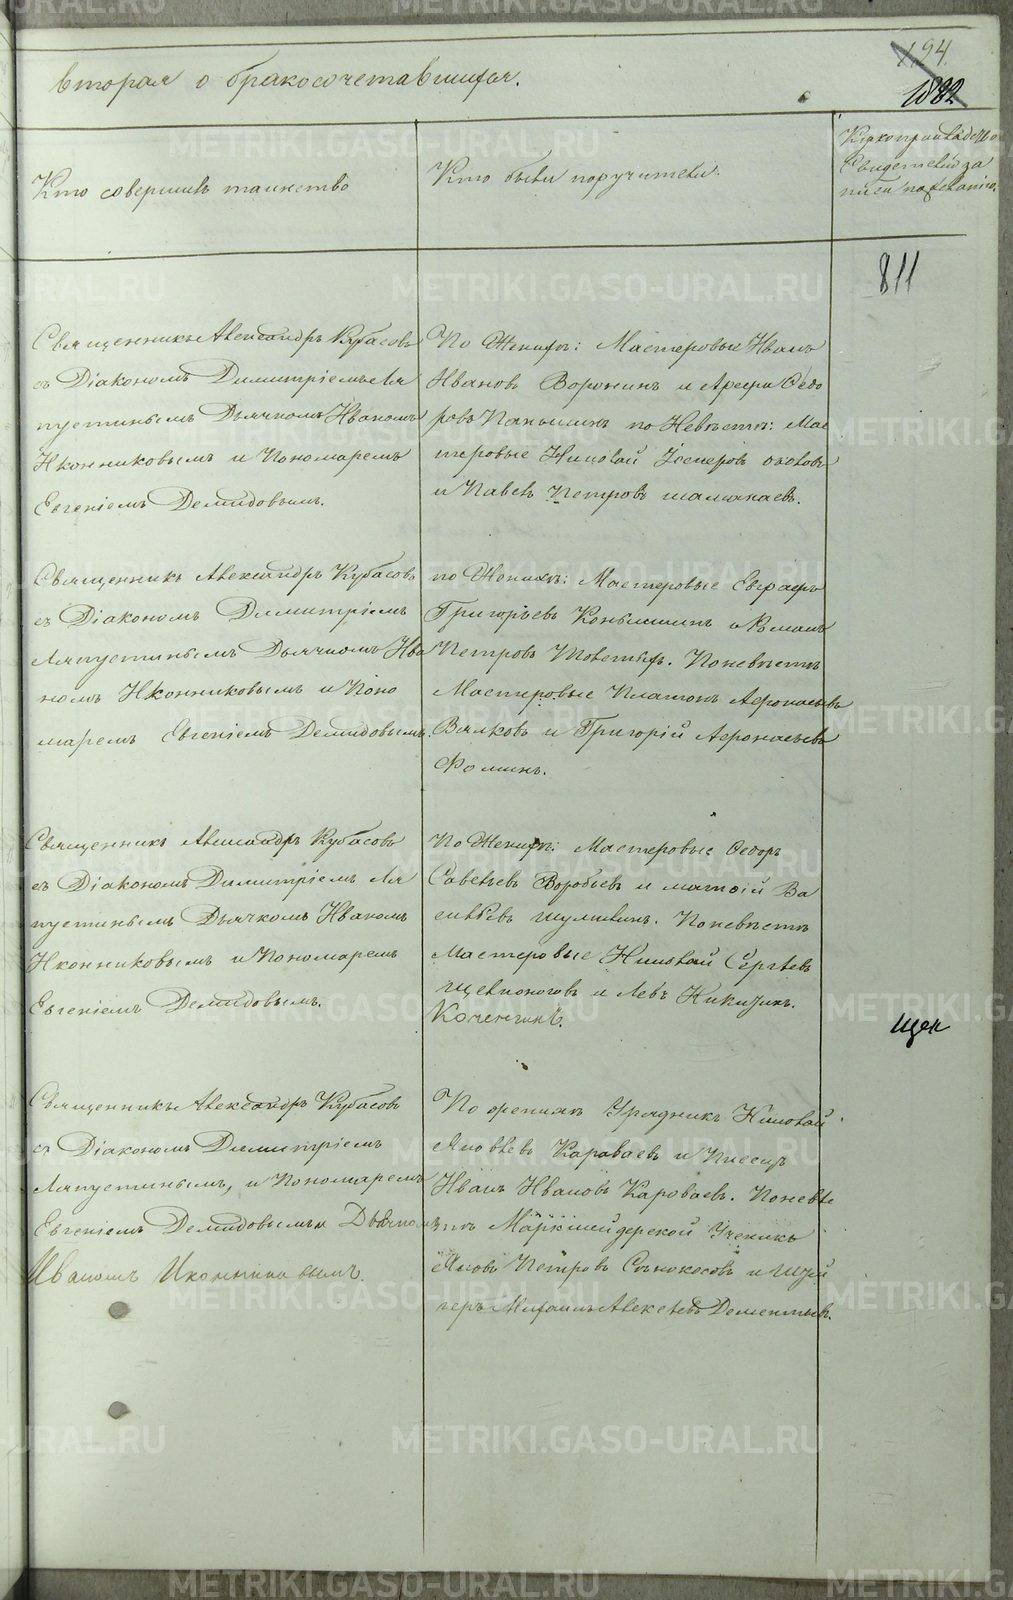 194
1882
вторая о бракосочетавшихся.
Кто совершилъ таинство
Кто были поручители.
Свидетелей за
811
Священникъ Александръ Кубасовъ
съ Діакономъ Димитріемъ Ля
пустинымъ Дьячкомъ Иваномъ
Иконниковымъ и Пономаремъ
Евгеніемъ Демидовымъ.
По Женихѣ: Мастеровые Иванъ
Ивановъ Воронинъ и Арефи Ѳедо
ровъ Паньшинъ по Невѣстѣ: Мас
теровые Николай
и Павелъ Петровъ
Священникъ Александръ Кубасовъ
съ Діакономъ Димитріемъ
Ляпустинымъ Дьячкомъ Ива
номъ Иконниковымъ и Поно
маремъ Евгеніемъ Демидовымъ.
по Женихѣ: Мастеровые Евграфъ
Григорьевъ Коньшинъ и Романъ
Петровъ По невѣстѣ
Мастеровые Платонъ Афонасьевъ
Вялковъ и Григорій Афонасьевъ
Фоминъ.
Священникъ Александръ Кубасовъ
съ Діакономъ Димитріемъ Ля
пустинымъ Дьячкомъ Иваномъ
Иконниковымъ и Пономаремъ
Евгеніемъ Демидовымъ.
По Женихѣ: Мастеровые Ѳедоръ
Савельевъ Воробьевъ и Матвій Ва
сильевъ Шумилинъ. По невѣстѣ
Мастеровые Николай Сергѣевъ
Щелконоговъ и Левъ Никитинъ.
Коченгинъ.
Щел
Священникъ Александръ Кубасовъ
съ Діакономъ Димитріемъ
Ляпустинымъ, и Пономаремъ
Евгеніемъ Демидовымъ и Дьячкомъ
Иваномъ Иконниковымъ.
По женихѣ Урядникъ Николай
Яковлевъ Караваевъ и Писецъ
Иванъ Ивановъ Караваевъ. По невѣс
тѣ Маркшейдерской Ученикъ
Яковъ Петровъ Сѣнокосовъ и Штей
геръ Михаилъ Алексѣевъ Дементьевъ.
METRIKI.GASO-URAL.RU